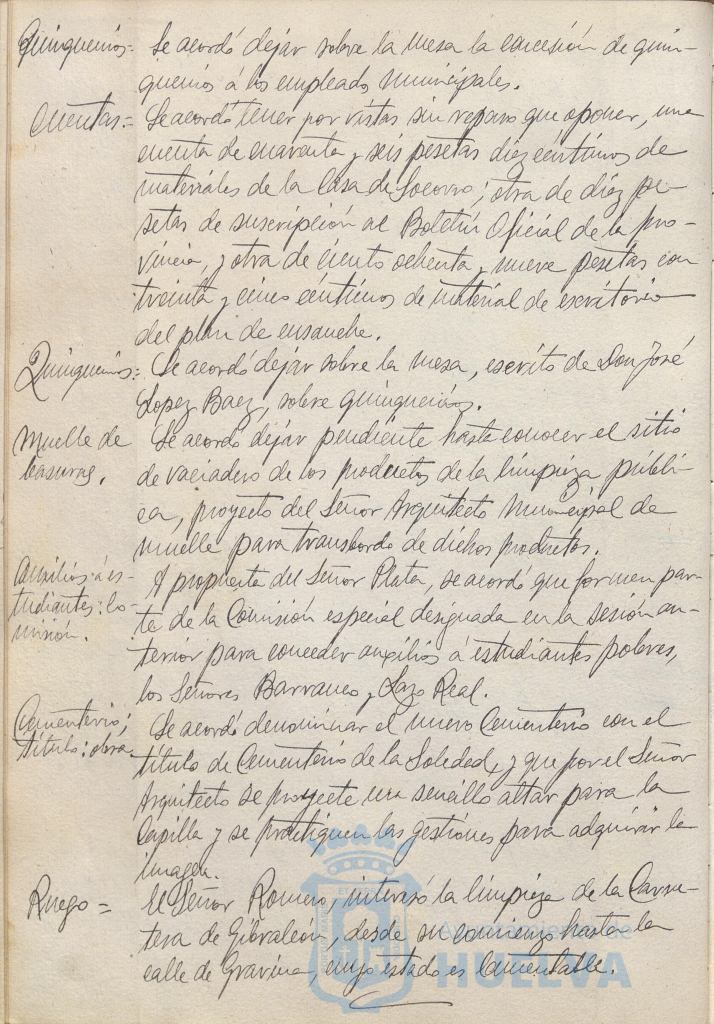 Quinquenios= Se acordó dejar sobre la mesa la concesión de quin-
quenios á los empleados municipales.
Cuentas= Se acordó tener por vistas sin reparo que oponer, una
cuenta de cuarenta y seis pesetas diez céntimos de
materiales de la Casa de Socorro; otra de diez pe-
setas de suscripción al Boletín Oficial de la pro-
vincia, y otra de ciento ochenta y nueve pesetas con
treinta y cinco céntimos de material de escritorio
del plan de ensanche.
Quinquenios= Se acordó dejar sobre la mesa, escrito de Don José
Lopez Baez, sobre quinquenios.
Muelle de Se acordó dejar pendiente hasta conocer el sitio
basuras. de vaciadero de los productos de la limpieza públi-
ca, proyecto del Señor Arquitecto Municipal de
muelle para transbordo de dichos productos.
Auxilios á es- A propuesta del Señor Plata, se acordó que formen par-
tudiantes: Co- te de la Comisión especial designada en la sesión an-
misión. terior para conceder auxilios á estudiantes pobres,
los Señores Barranco y Lazo Real.
Cementerio; Se acordó denominar el nuevo Cementerio con el
título: obra título de Cementerio de la Soledad, y que por el Señor
Arquitecto se proyecte un sencillo altar para la
Capilla y se practiquen las gestiones para adquirir la
imagen.
Ruego= El Señor Romero, interesó la limpieza de la Carre-
tera de Gibraleón, desde su comienzo hasta la
calle de Gravina, cuyo estado es lamentable.
Ayuntamiento de
HUELVA